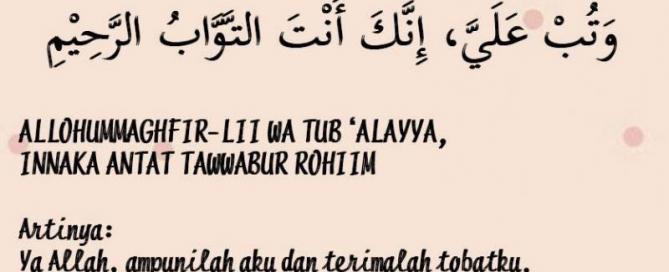 وَتُبْ عَلَيَّ، إِنَّكَ أَنْتَ التَّوَّابُ الرَّحِيْمِ
ALLOHUMMAGHFIR-LII WA TUB ‘ALAYYA,
INNAKA ANTAT TAWWABUR ROHIIM
Artinya:
Ya Allah, ampunilah aku dan terimalah tobatku,